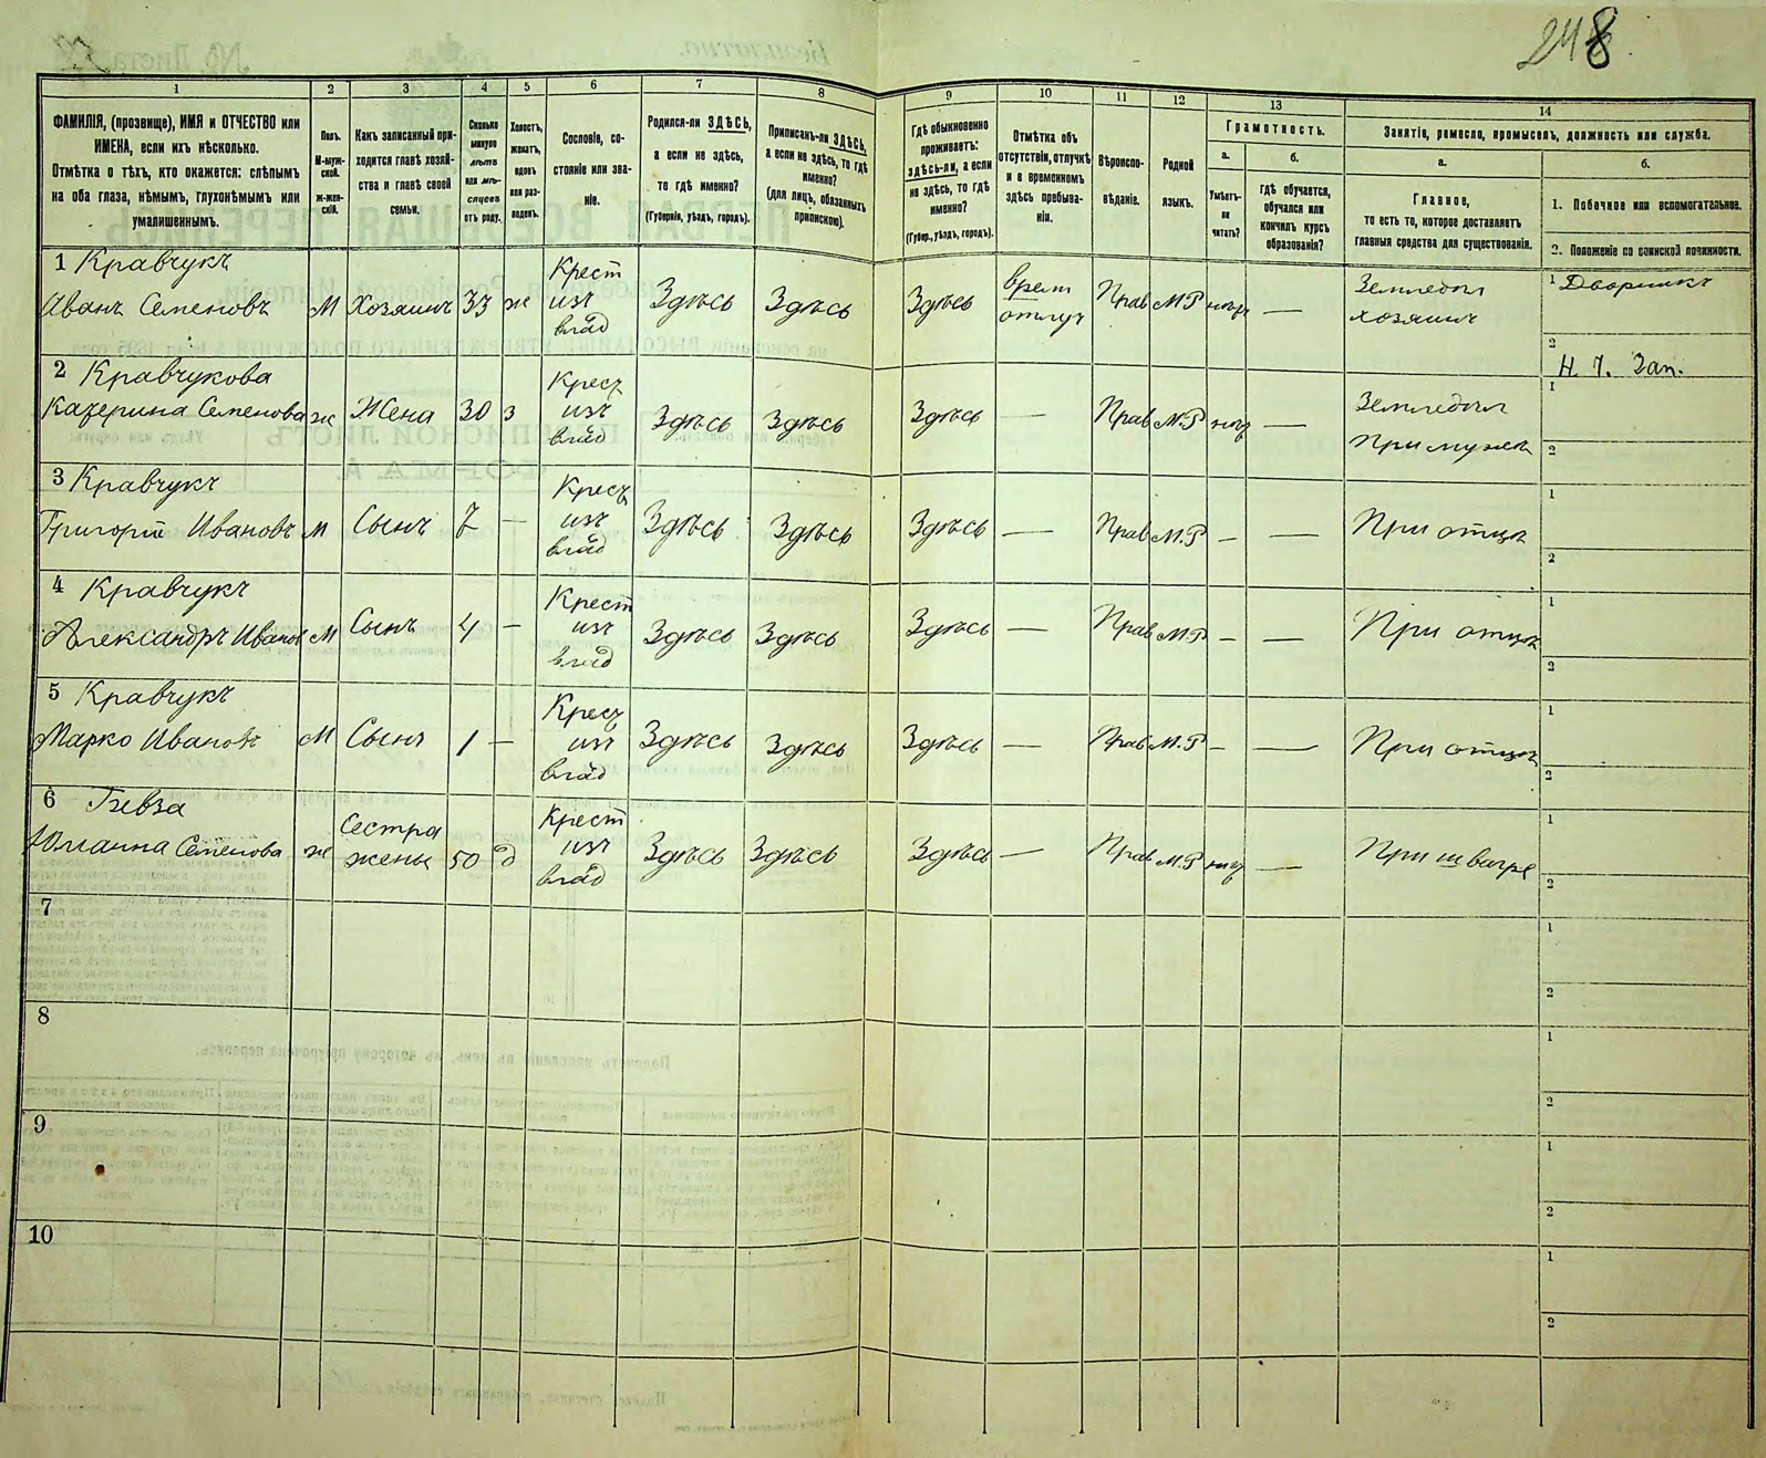 248
1 2 3 4 5 6 7 8 9 10 11 12 13 14
ФАМИЛІЯ, (прозвище), ИМЯ и ОТЧЕСТВО или
ИМЕНА, если ихъ нѣсколько.
Отмѣтка о тѣхъ, кто окажется: слѣпымъ
на оба глаза, нѣмымъ, глухонѣмымъ или
умалишеннымъ.
Полъ.
М-муж-
ской.
ж-жен-
скій.
Какъ записанный при-
ходится главѣ хозяй-
ства и главѣ своей
семьи.
Сколько
минуло
лѣтъ
или мѣ-
сяцевъ
отъ роду.
Холостъ,
женатъ,
вдовъ
или раз-
веденъ.
Сословіе, со-
стояніе или зва-
ніе.
Родился-ли ЗДѢСЬ,
а если не здѣсь,
то гдѣ именно?
(Губернія, уѣздъ, городъ).
Приписанъ-ли ЗДѢСЬ,
а если не здѣсь, то гдѣ
именно?
(для лицъ, обязанныхъ
припискою).
Гдѣ обыкновенно
проживаетъ:
здѣсь-ли, а если
не здѣсь, то гдѣ
именно?
(Губер., уѣздъ, городъ).
Отмѣтка объ
отсутствіи, отлучкѣ
и о временномъ
здѣсь пребыва-
ніи.
Вѣроиспо-
вѣданіе.
Родной
языкъ.
Грамотность.
а.
Умѣетъ-
ли
читать?
б.
гдѣ обучается,
обучался или
кончилъ курсъ
образованія?
Занятіе, ремесло, промыселъ, должность или служба.
а.
Главное,
то есть то, которое доставляетъ
главныя средства для существованія.
б.
1. Побочное или вспомогательное.
2. Положеніе по воинской повинности.
1 Кравчукъ
Иванъ Семеновъ М Хозяинъ 33 ж Крест изъ влад Здѣсь Здѣсь Здѣсь врем отлуч Прав М.Р нѣтъ — Земледѣл хозяинъ 1 Дворникъ
2 Н. 1. Зап.
2 Кравчукова
Катерина Семенова ж Жена 30 з Крест изъ влад Здѣсь Здѣсь Здѣсь — Прав М.Р нѣтъ — Земледѣл При мужѣ 1
2
3 Кравчукъ
Григорій Ивановъ М Сынъ 7 — Крест изъ влад Здѣсь Здѣсь Здѣсь — Прав М.Р — — При отцѣ 1
2
4 Кравчукъ
Александръ Иванов М Сынъ 4 — Крест изъ влад Здѣсь Здѣсь Здѣсь — Прав М.Р — — При отцѣ 1
2
5 Кравчукъ
Марко Ивановъ М Сынъ 1 — Крест изъ влад Здѣсь Здѣсь Здѣсь — Прав М.Р — — При отцѣ 1
2
6
Юлианна Семенова ж Сестра жены 50 Крест изъ влад Здѣсь Здѣсь Здѣсь — Прав М.Р нѣтъ — При швагре 1
2
7 1
2
8 1
2
9 1
2
10 1
2